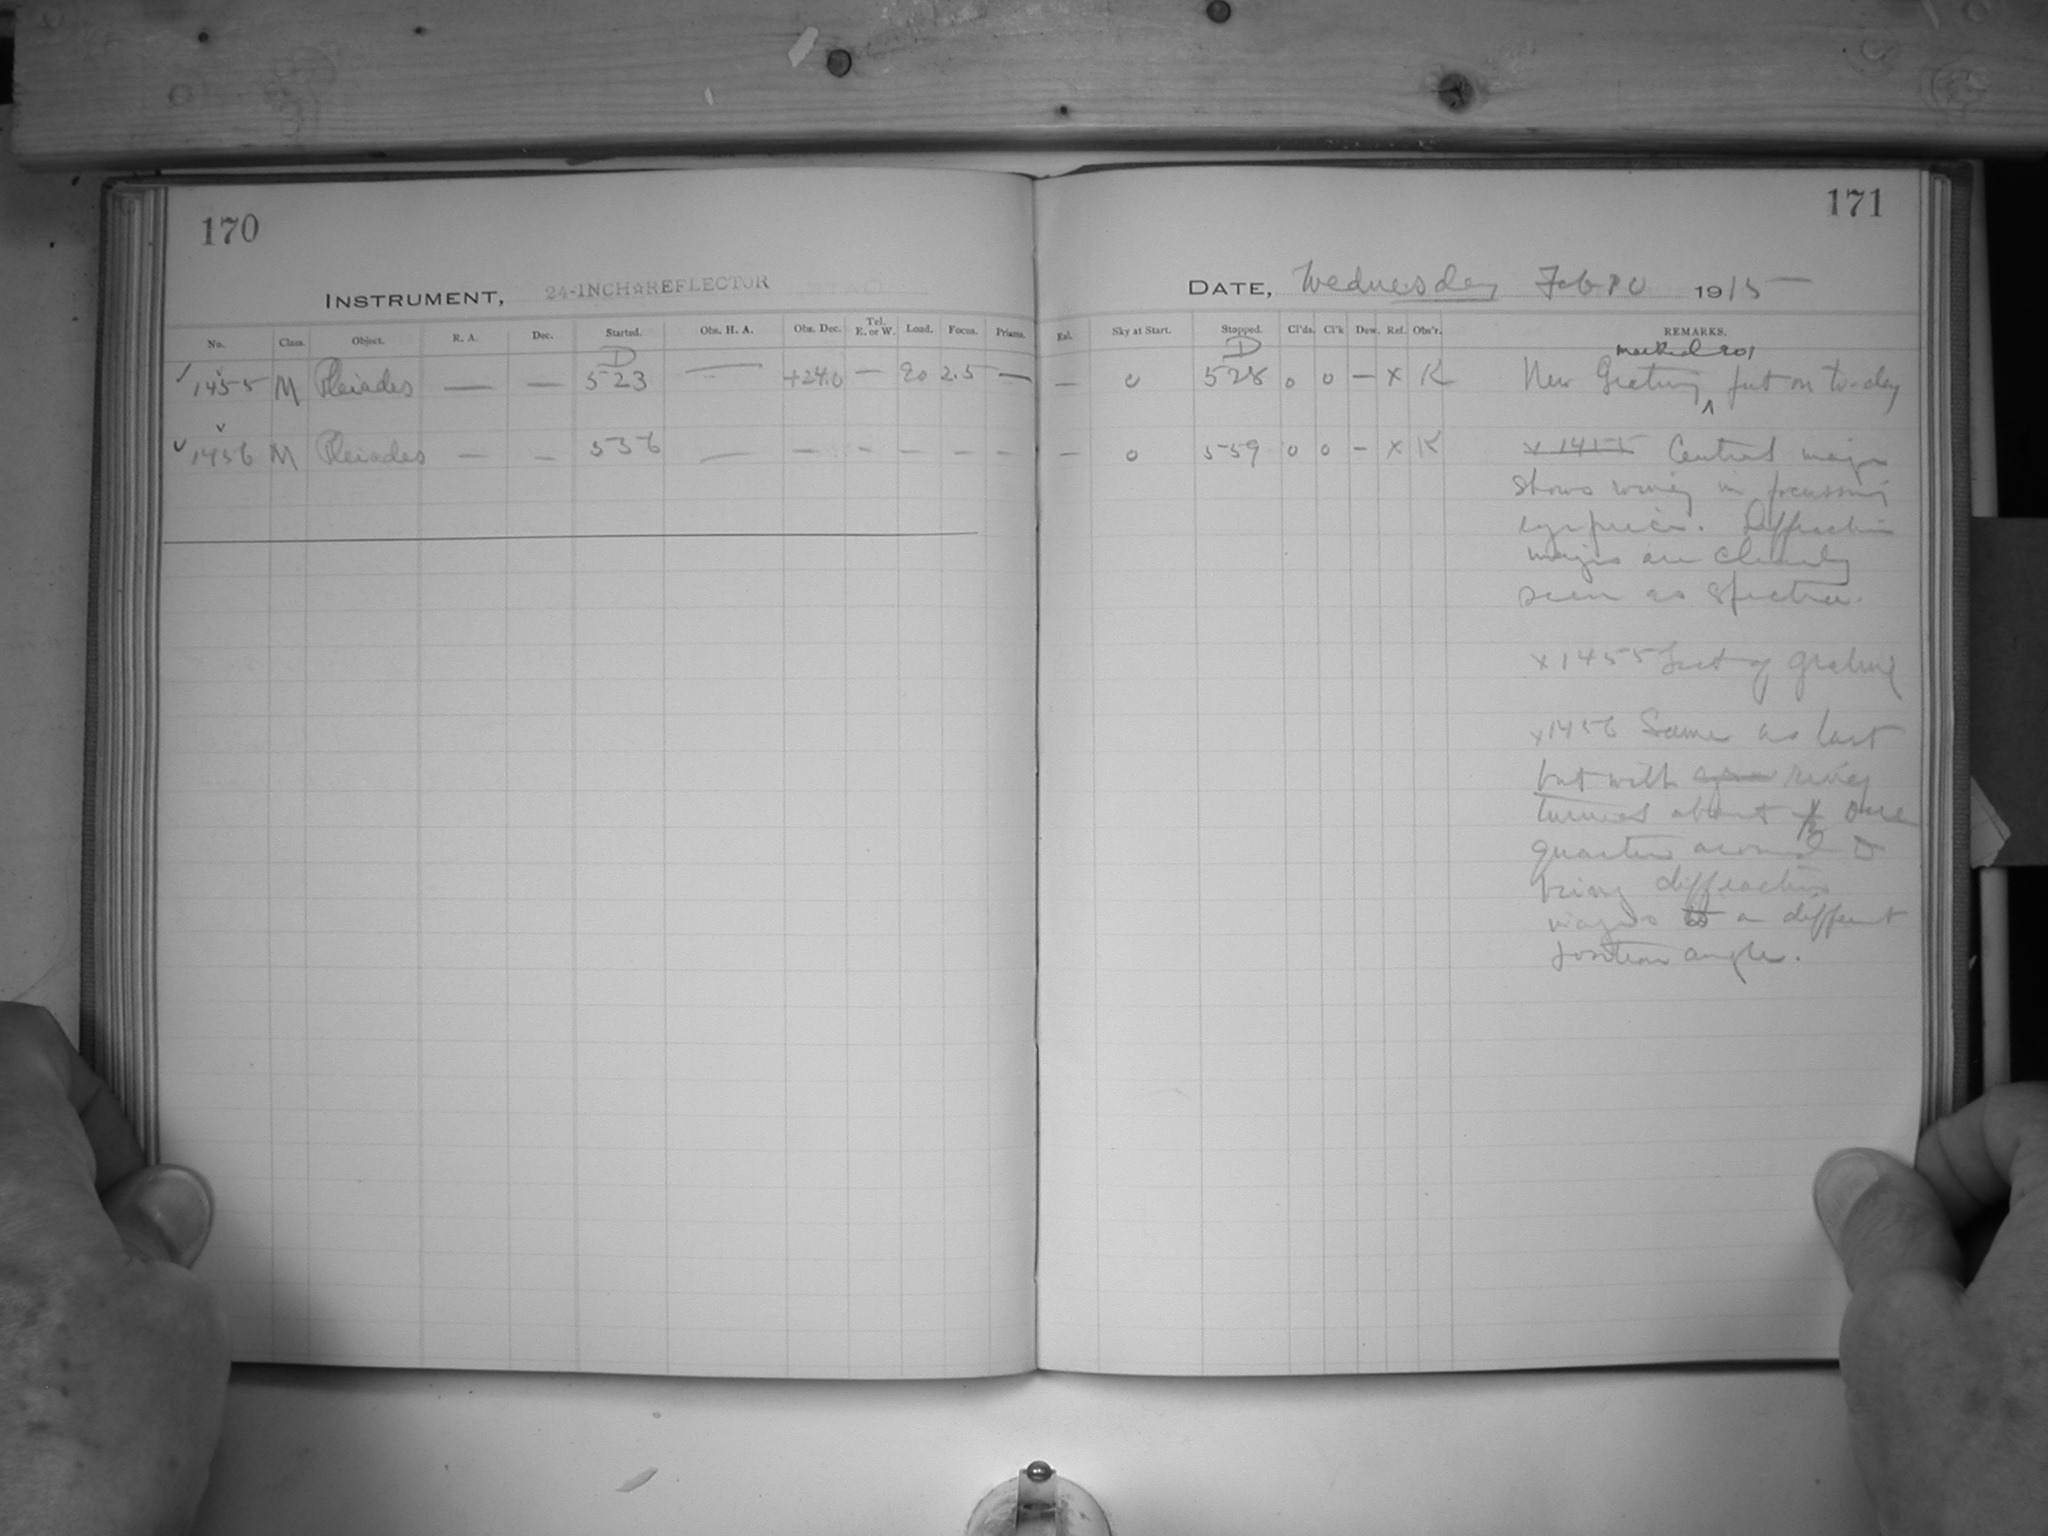 170
INSTRUMENT, 24-INCH REFLECTOR
No. Class. Object. R. A. Dec. Started. Obs. H. A. Obs. Dec. Tel. E. or W. Load. Focus. Prisms.
D
1455 M Pleiades — — 523 — +24.0 — 20 2.5 —
1456 M Pleiades — — 536 — — — — — —
171
DATE, Wednesday Feb 10 1915
Exl. Sky at Start. Stopped. Cl'ds. Cl'k Dew. Ref. Obs'r. REMARKS.
D
— 0 528 0 0 — x K
— 0 559 0 0 — x K
marked
New Grating ^ put on to-day
x 1455 Central image
shows in focussing
eyepiece. Diffraction
images are clearly
seen as spectra.
x 1455 Test of grating
x 1456 Same as last
but with
turned about one
quarter around to
bring diffraction
images to a different
position angle.